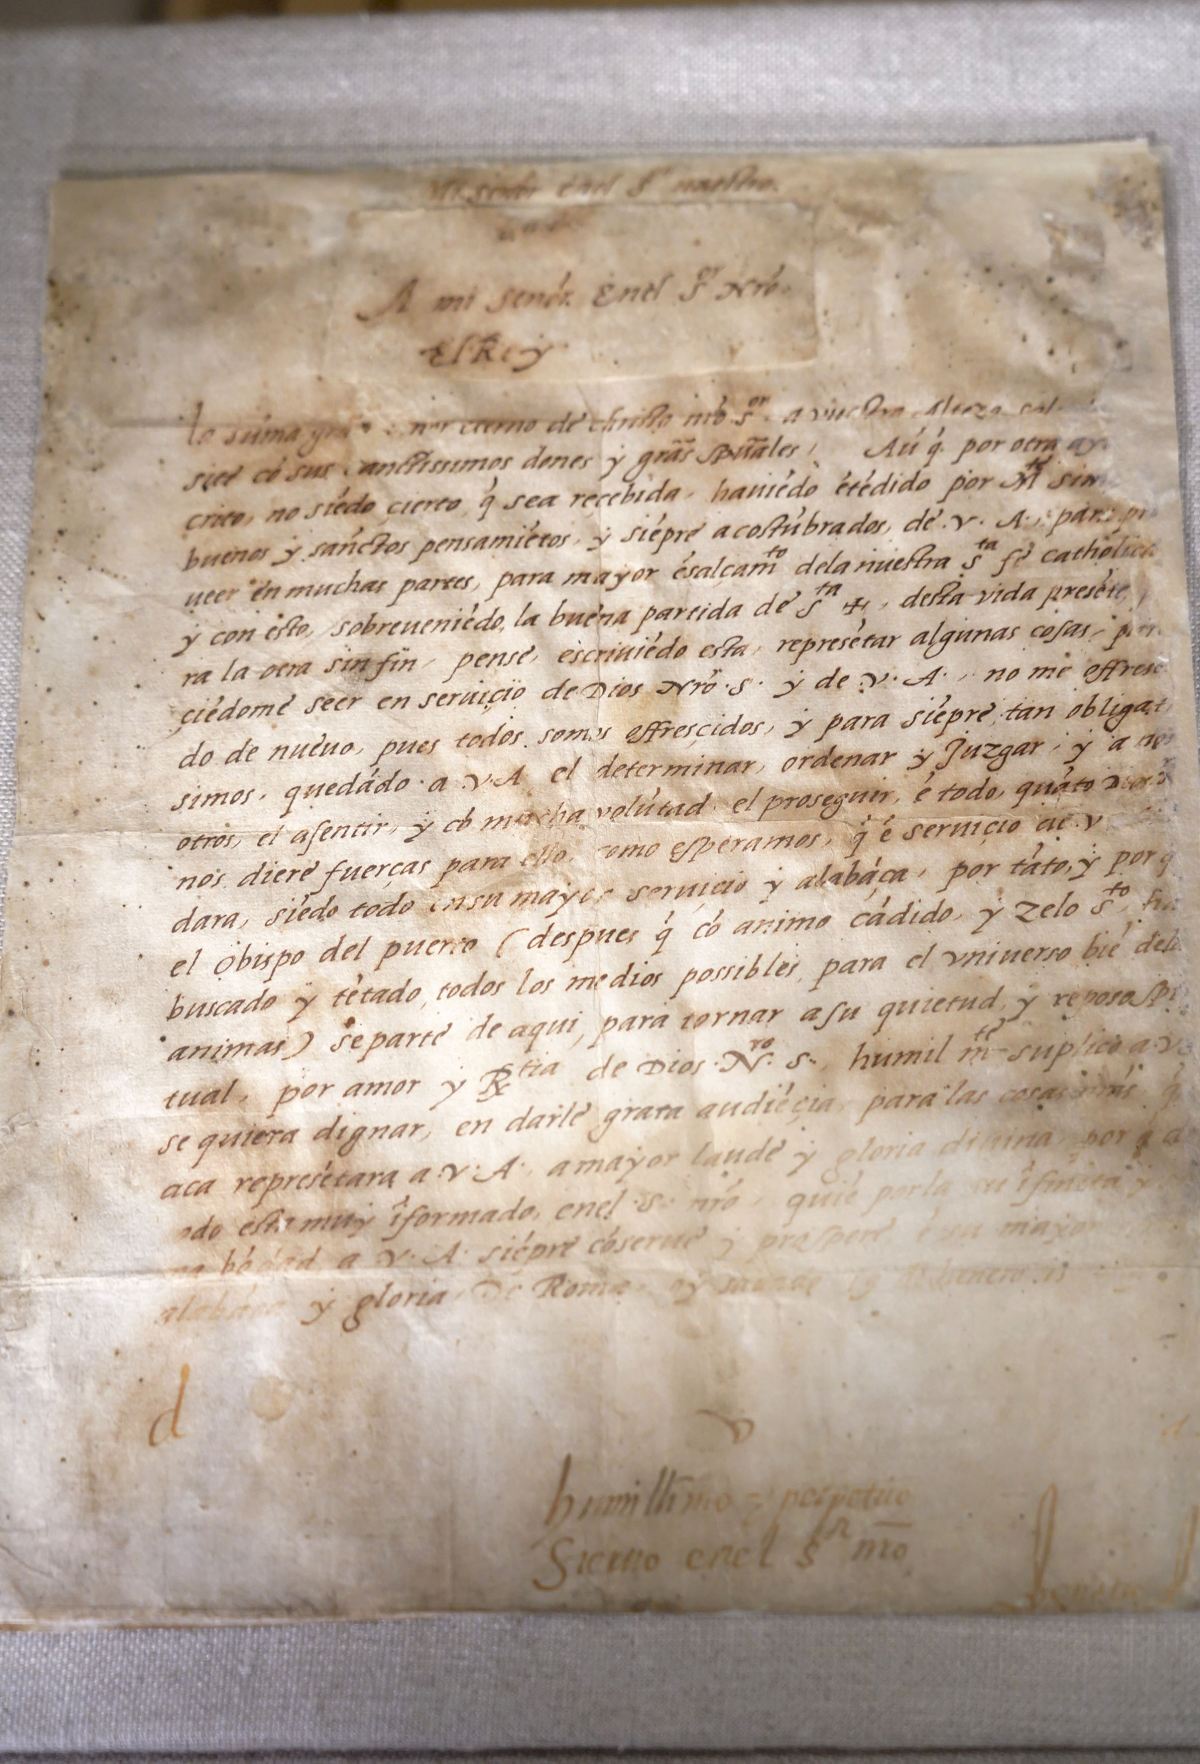 Mi señor enel Sʳ nuestro.
A mi Senór Enel Sᵒʳ Nrō.
El Rey
la súma gra amor eterno de christo nrō Sᵒʳ a vuestra Alteza sal
siteé có sus sanctissimos dones y grās spūales, Aú q́ por otra ay
crito, no siédo çierto q́ sea reçebida, haviédo étédido por
buenos y sanctos pensamiétos, y siépre acostúbrados, de .V. A., para pro
ueer en muchas partes, para mayor ésalçamᵗᵒ dela nuestra Sᵗᵃ fe catholica
y con esto, sobreueniédo la buena partida de Sᵗᵃ +, desta vida presére,
ra la otra sin fin, pense, escriuiédo esta, represétar algunas cosas,
çiédome seer en seruiçio de Dios Nrō .S. y de .V. A., no me offresç
do de nueuo, pues todos somos offresçidos, y para siépre tan obligat
simos, quedádo a V.A. el determinar, ordenar y Juzgar, y a
otros, el asentir, y có mucha volútad el proseguir, é todo, quáto
nos diere fuerças para ello, como esperamos, q́ é seruiçio de V
dara, siédo todo ensu mayor seruiçio y alabáça, por táto, y por q
el Obispo del puerto (despues q́ có animo cádido, y zelo Sᵗᵒ, ha
buscado y tétado todos los medios possibles, para el vniuerso bié dela
animas) se parte de aqui, para tornar asu quietud, y reposo spi
tual, por amor y Rᵗⁱᵃ de Dios .Nʳᵒ. S., humil mᵗᵉ suplico a .V.
se quiera dignar, en darle grata audiéçia, para las cosas q́
aca represétara a .V. A., a mayor laude y gloria diuina, por q
odo esta muy íformado, enel .S. nrō, quié por la su ífinita y
bódad a .V. A. siépre cóserue y prospere é su mayor
alabáça y gloria, De Roma,
d
humillimo y perpetuo
Sieruo enel Sʳ nrō